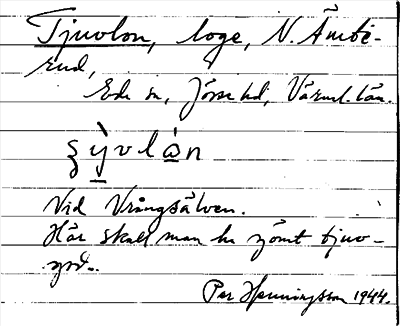 Tjuvlon, loge, N. Ämte-
rud,
Eda sn, Jösse hd, Värml. län.
ʂy̠̍vla̠̍n
Vid Vrångsälven.
Här skall man ha gömt tjuv-
god..
Per Henningsson 1944.